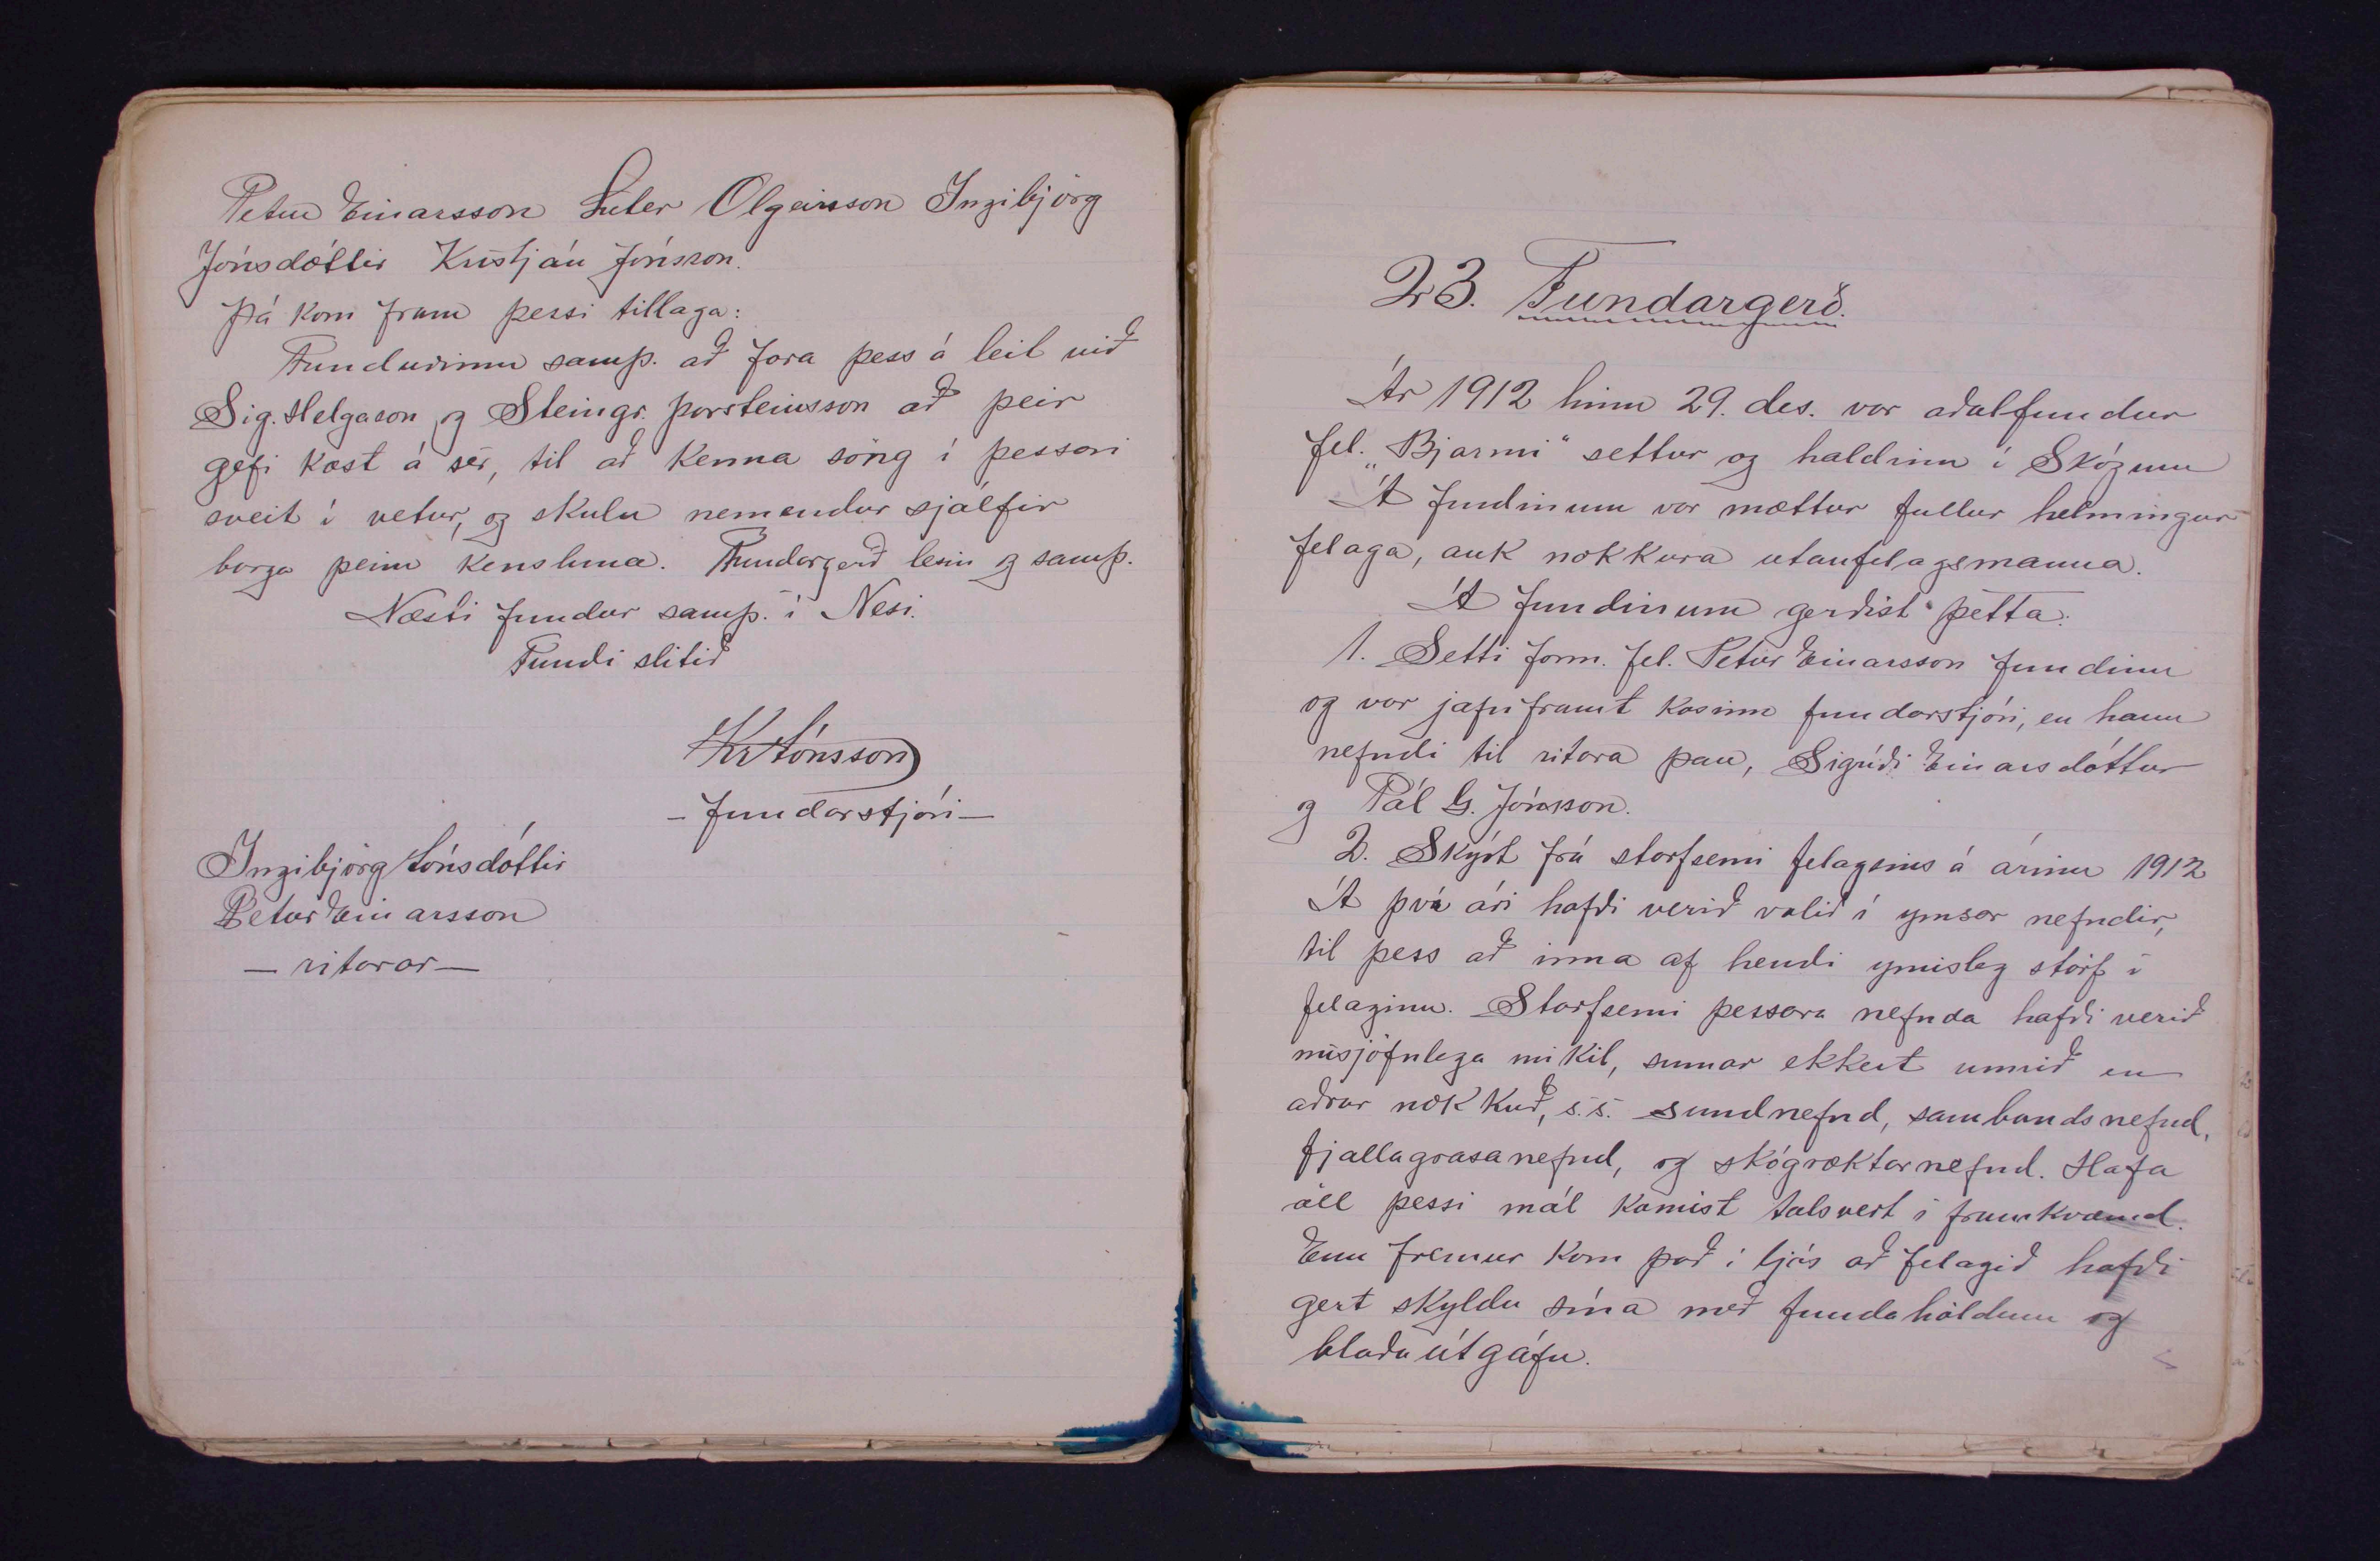 Petur Einarsson Luter Olgeirsson Ingibjörg
Jónsdóttir Kristján Jónsson.
Þá kom fram þessi tillaga:
Fundurinn samþ. að fara þess á leit við
Sig. Helgason og Steingr. Þorsteinsson að þeir
gefi kost á sér, til að kenna söng í þessari
sveit í vetur, og skulu nemendur sjálfir
borga þeim kensluna. Fundargerð lesin og samþ.
Næsti fundur samþ. í Nesi.
Fundi slitið
Kr Jónsson
- fundarstjóri -
Ingibjörg Jónsdóttir
Petur Einarsson
- ritarar -
23. Fundargerð.
Ár 1912 hinn 29. des. var aðalfundur
fel. „Bjarmi“ settur og haldinn í Skógum
Á fundinum var mættur fullur helmingur
felaga, auk nokkura utanfelagsmanna.
Á fundinum gerðist þetta:
1. Setti form. fel. Petur Einarsson fundinn
og var jafnframt kosinn fundarstjóri, en hann
nefndi til ritara þau, Sigríði Einarsdóttur
og Pál G. Jónsson.
2. Skýrt frá starfsemi felagsins á árinu 1912
Á því ári hafði verið valið í ymsar nefndir,
til þess að inna af hendi ymisleg störf í
felaginu. Starfsemi þessara nefnda hafði verið
misjöfnlega mikil, sumar ekkert unnið en
aðrar nokkuð, s.s. sundnefnd, sambandsnefnd,
fjallagrasanefnd, og skógræktarnefnd. Hafa
öll þessi mál komist talsvert í framkvæmd.
Enn fremur kom það í ljós að felagið hafði
gert skyldu sína með fundahöldum og
blaðaútgáfu.